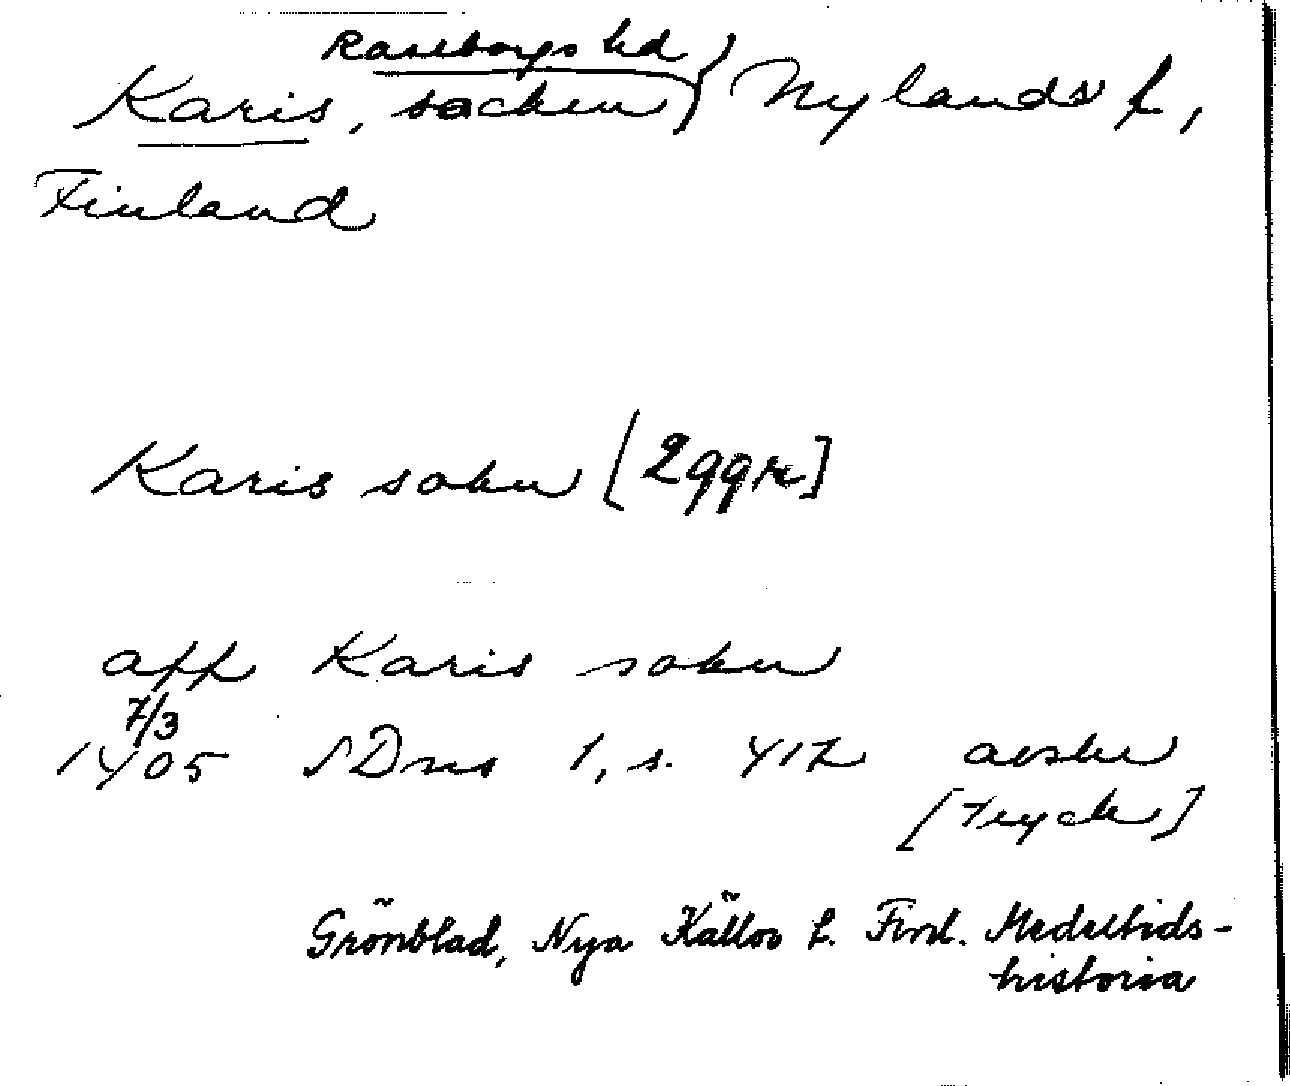 Raseborgs hd
Karis, socken, Nylands l,
Finland
Karis sokn [2 ggr]
aff Karis sokn
7/3
1405 SDns 1, s. 417 avskr
[tryck]
Grönblad, Nya Källor t. Finl. Medeltids-
historia